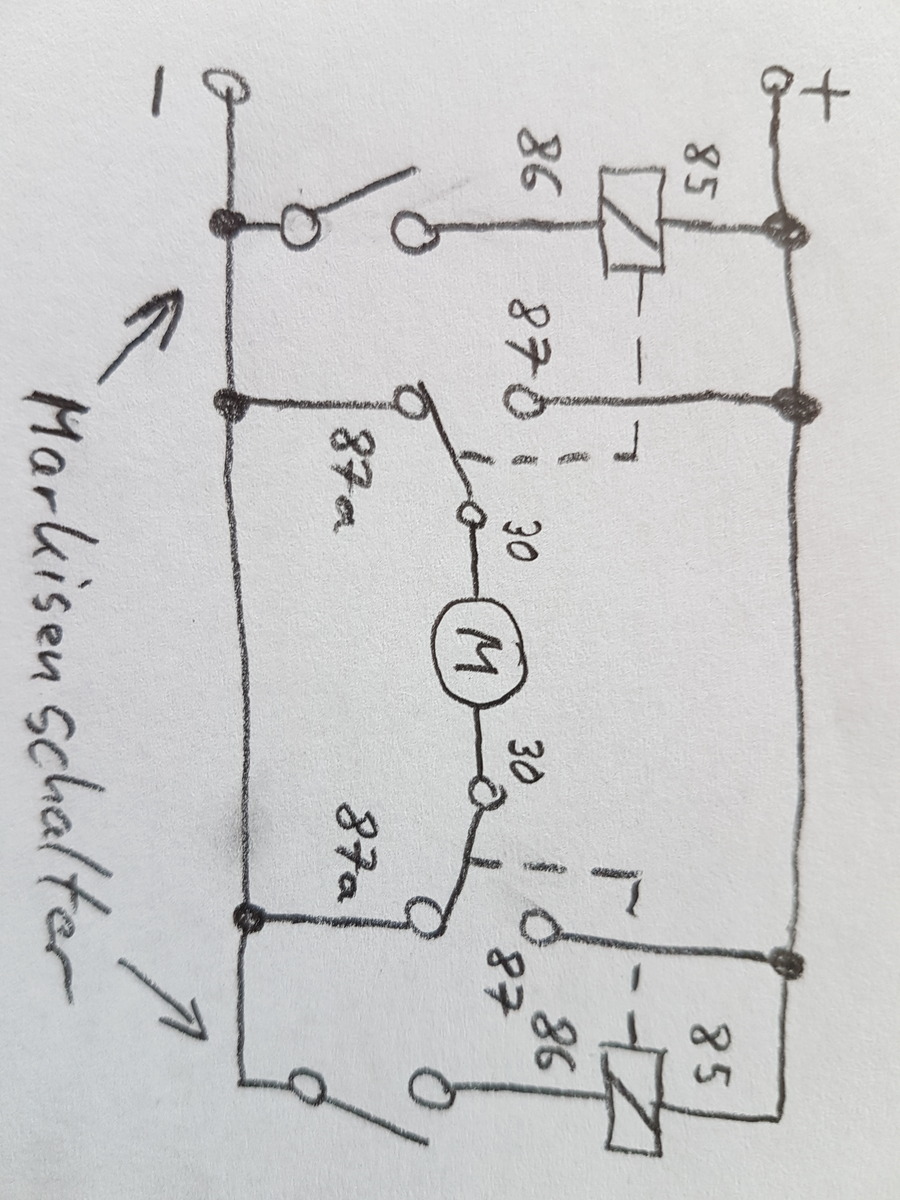 +
85
85
86
87
30
30
87
86
M
87a
87a
-
Markisenschalter